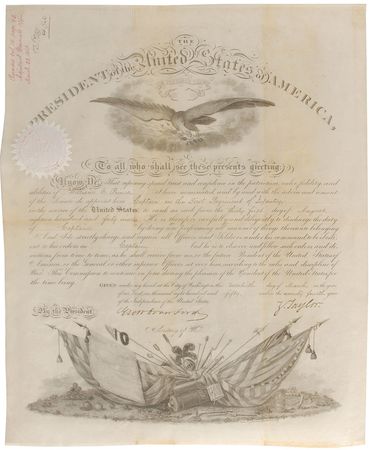 THE
PRESIDENT of the United States of AMERICA,
To all who shall see these presents greeting:
Know Ye, That reposing special trust and confidence in the patriotism, valor, fidelity and
abilities of I have nominated, and by and with the advice and consent
of the Senate do appoint him Captain in the First Regiment of Infantry
in the service of the United States to rank as such from the day of August
eighteen hundred and forty He is therefore carefully and diligently to discharge the duty
of Captain by doing and performing all manner of things thereunto belonging.
And I do strictly charge and require all Officers and Soldiers under his command to be obedi-
ent to his orders as Captain And he is to observe and follow such orders and di-
rections from time to time, as he shall receive from me, or the future President of the United States of
America, or the General or other superior Officers set over him, according to the rules and discipline of
War. This Commission to continue in force during the pleasure of the President of the United States for
the time being.
GIVEN under my hand at the City of Washington this day of March in the year
of our Lord one thousand eight hundred and fifty and in the year
of the Independence of the United States.
By the President,
Geo W Crawford
Z. Taylor
Secretary of War.